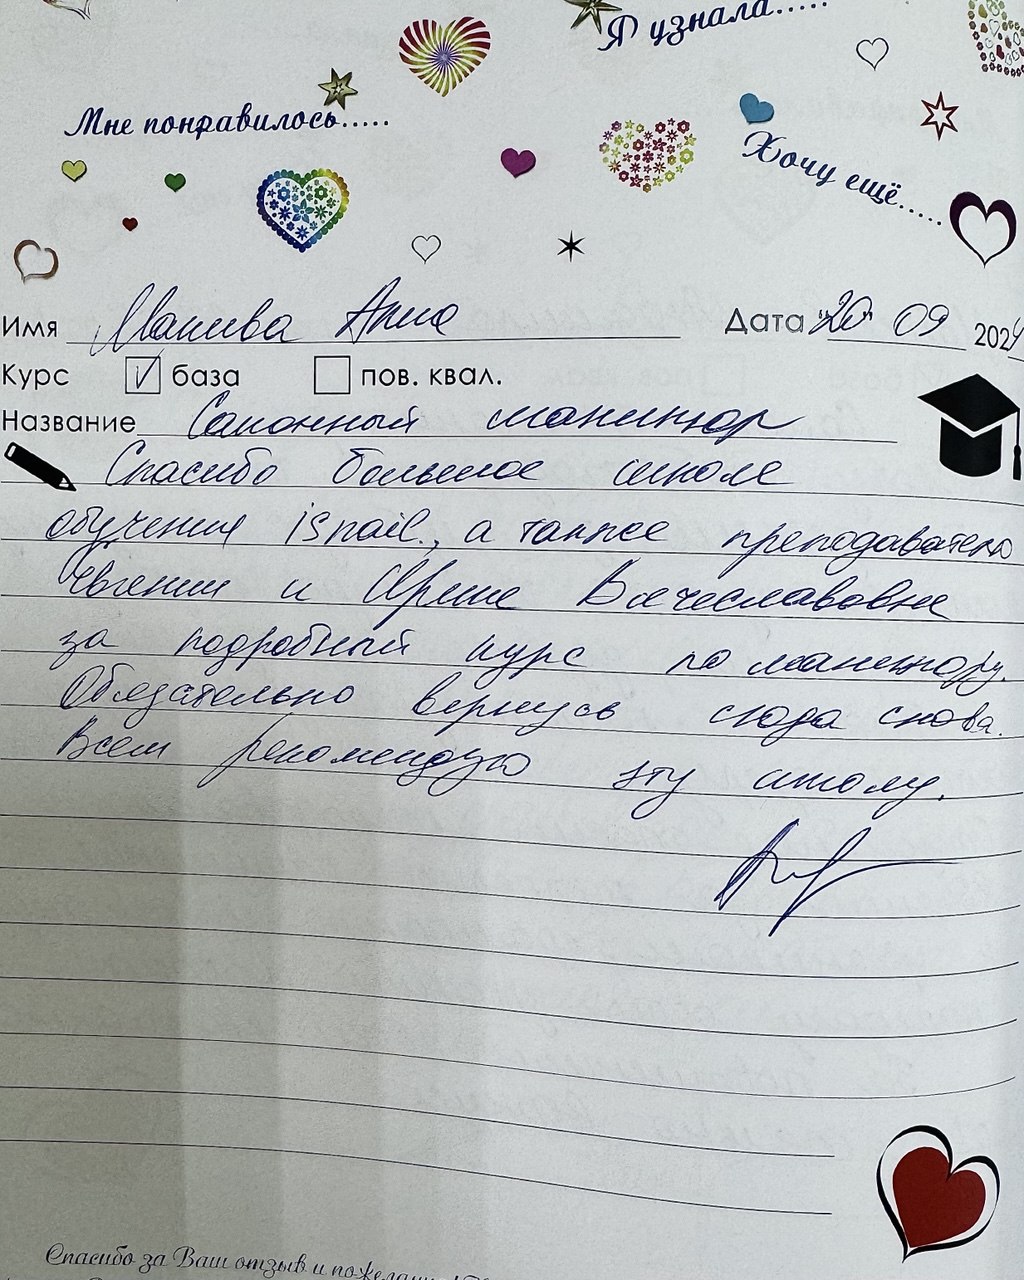 Я узнала.....
Мне понравилось.....
Хочу ещё.....
Имя Анна Дата "20" 09 2024
Курс база пов. квал.
Название Салонный маникюр
Спасибо большое школе
обучения isnail., а также преподавателю
Евгении и Ирине Вячеславовне
за подробный курс по маникюру.
Обязательно вернусь сюда снова.
Всем рекомендую эту школу.
Спасибо за Ваш отзыв и